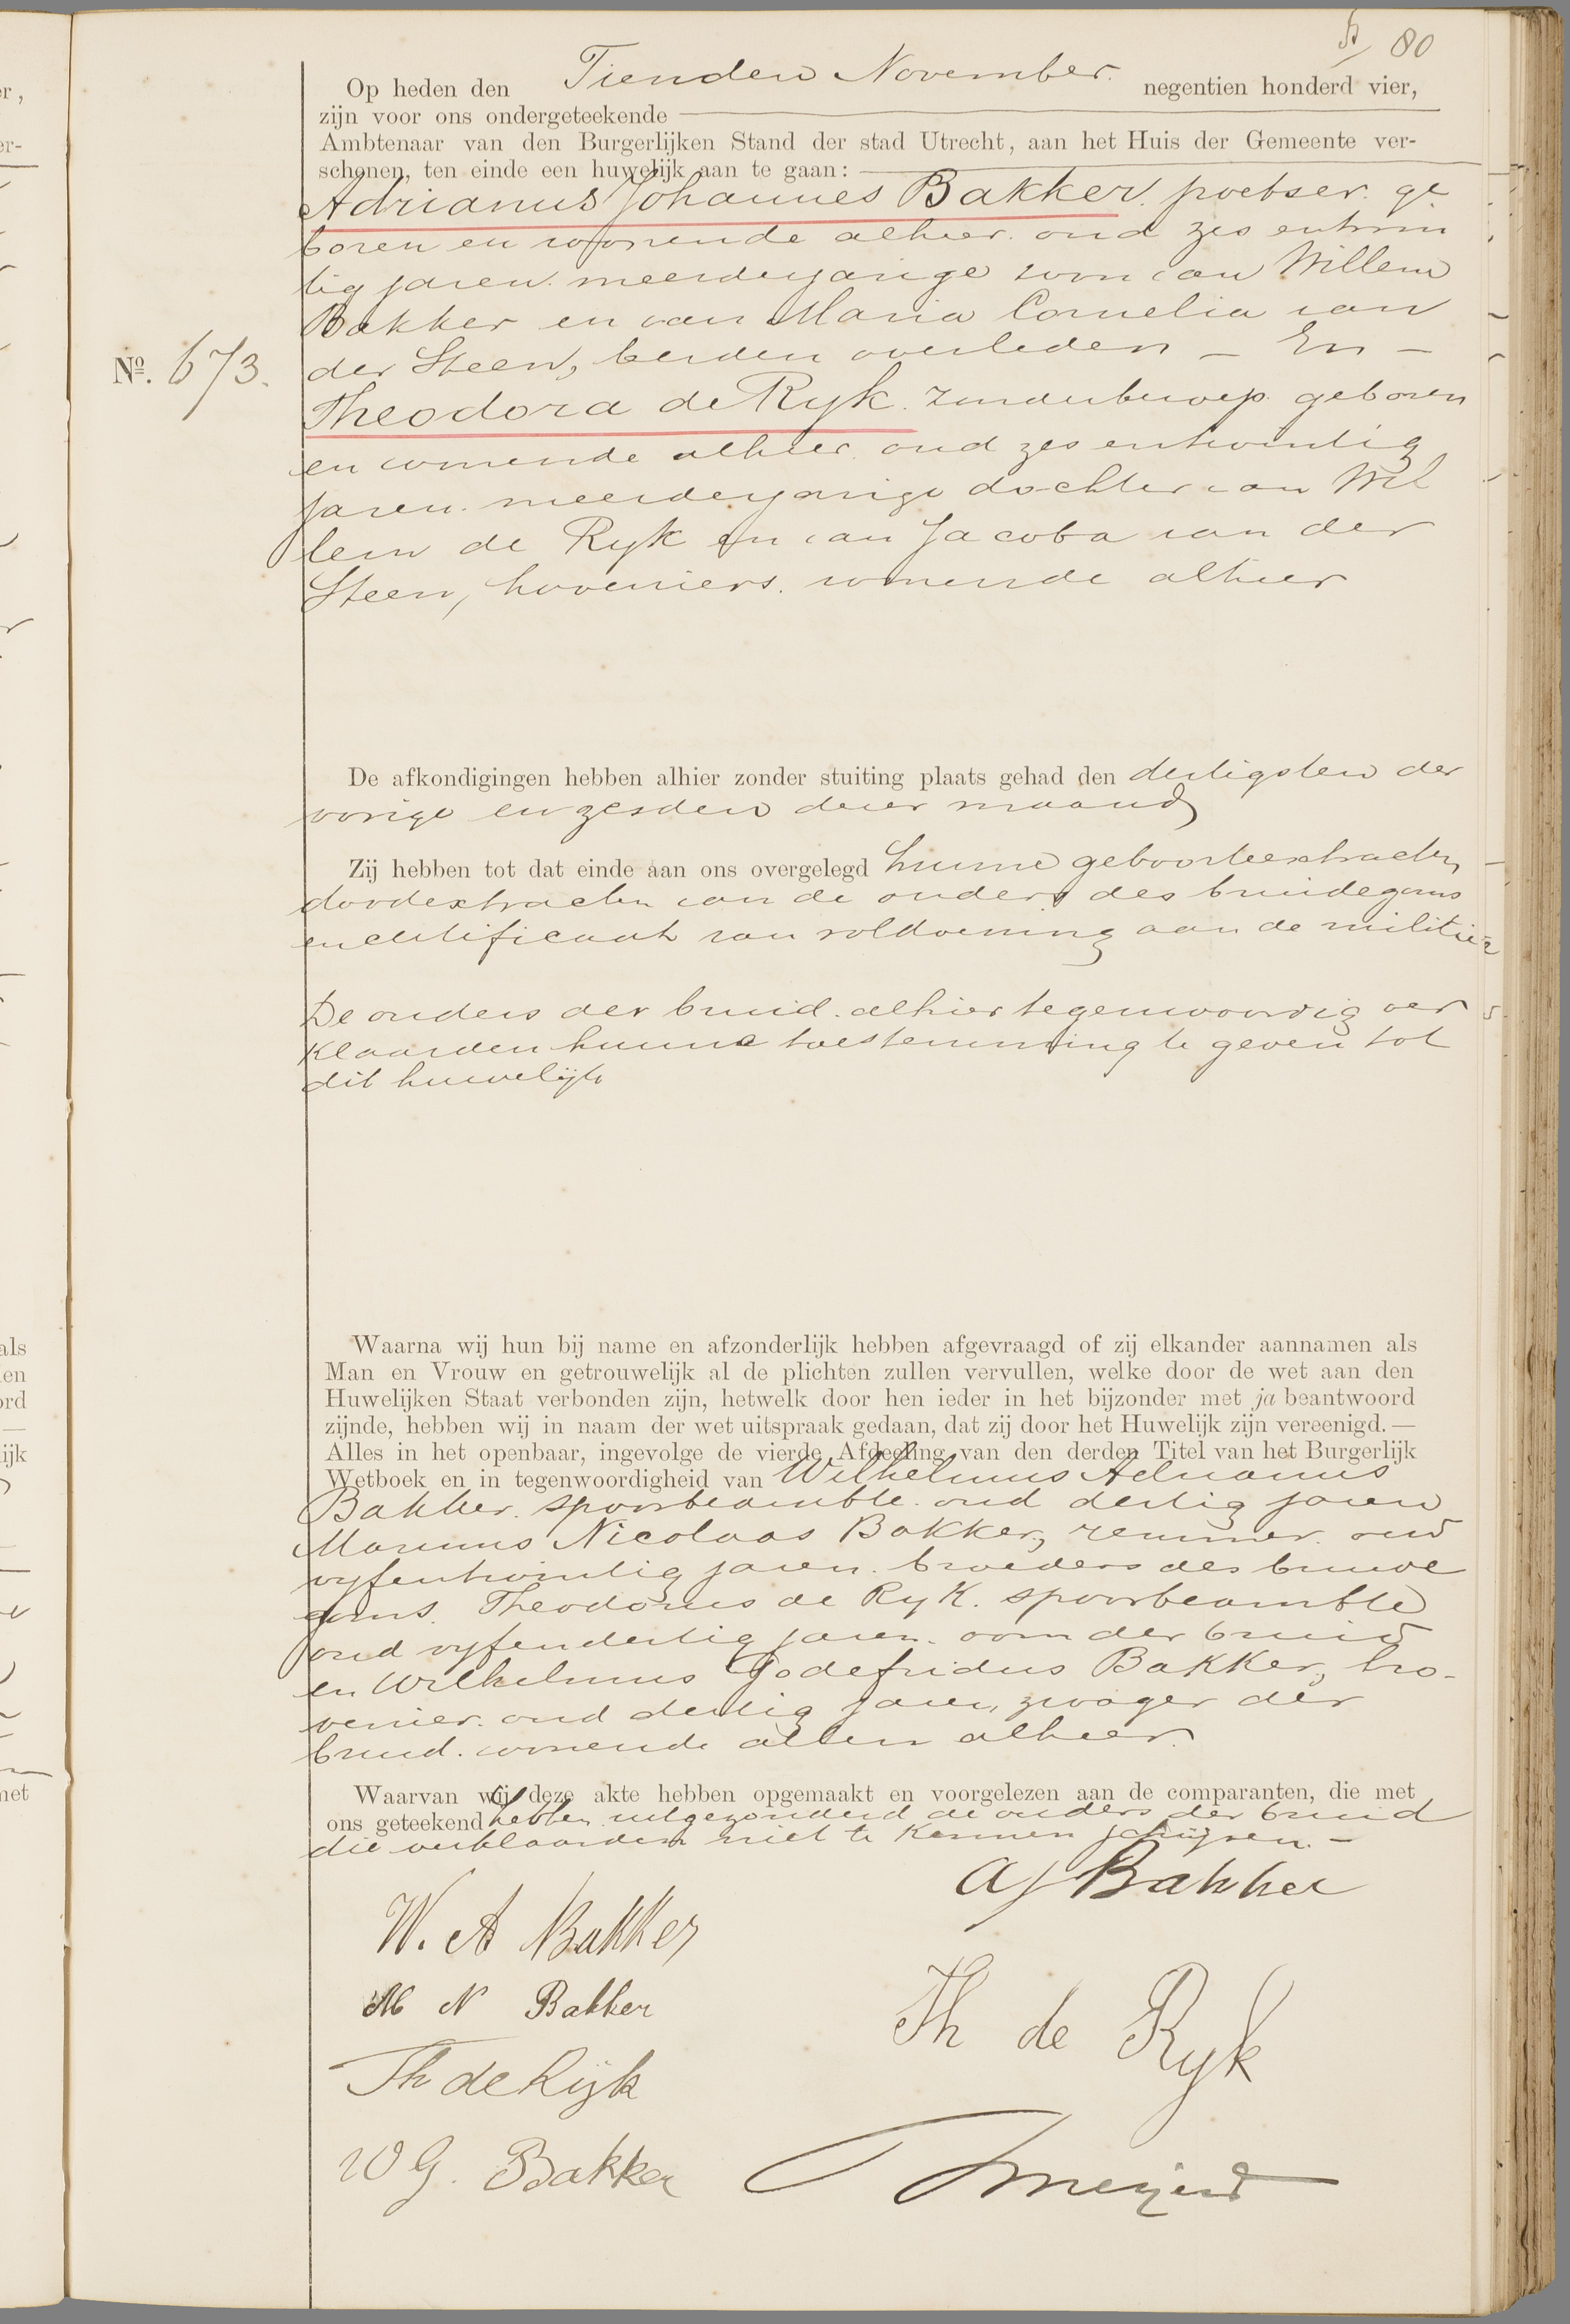 80
Op heden den Tienden November. negentien honderd vier,
zijn voor ons ondergeteekende
Ambtenaar van den Burgerlijken Stand der stad Utrecht, aan het Huis der Gemeente ver-
schenen, ten einde een huwelijk aan te gaan:
Adrianus Johannes Bakker. poetser. ge
boren en wonende alhier. oud zes entwin
tig jaren. meerderjarige zoon van Willem
Bakker en van Maria Cornelia van
der Steen, beiden overleden — En —
No. 673.
Theodora de Ryk. zonder beroep. geboren
en wonende alhier oud zes entwintig
jaren. meerderjarige dochter van Wil
lem de Ryk en van Jacoba van der
Steen, hoveniers. wonende alhier
De afkondigingen hebben alhier zonder stuiting plaats gehad den dertigsten der
vorige en zesden dezer maand
Zij hebben tot dat einde aan ons overgelegd hunne geboorteextracten,
doodextracten van de ouders des bruidegoms
en certificaat van voldoening aan de militie
De ouders der bruid. alhier tegenwoordig ver
klaarden hunne toestemming te geven tot
dit huwelijk
Waarna wij hun bij name en afzonderlijk hebben afgevraagd of zij elkander aannamen als
Man en Vrouw en getrouwelijk al de plichten zullen vervullen, welke door de wet aan den
Huwelijken Staat verbonden zijn, hetwelk door hen ieder in het bijzonder met ja beantwoord
zijnde, hebben wij in naam der wet uitspraak gedaan, dat zij door het Huwelijk zijn vereenigd. —
Alles in het openbaar, ingevolge de vierde Afdeeling van den derden Titel van het Burgerlijk
Wetboek en in tegenwoordigheid van Wilhelmus Adrianus
Bakker. spoorbeambte. oud dertig jaren
Marinus Nicolaas Bakker, remmer. oud
vyfentwintig jaren. broeders des bruide
goms. Theodorus de Ryk. spoorbeambte
oud vyfendertig jaren. oom der bruid
en Wilhelmus Godefridus Bakker, ho-
venier. oud dertig jaren, zwager der
bruid. wonende allen alhier.
Waarvan wij deze akte hebben opgemaakt en voorgelezen aan de comparanten, die met
ons geteekend hebben uitgezonderd de ouders der bruid
die verklaarden niet te kennen schrijven. —
AJ Bakker
W. A Bakker
M N Bakker
Th de Ryk
Th de Rijk
W G. Bakker